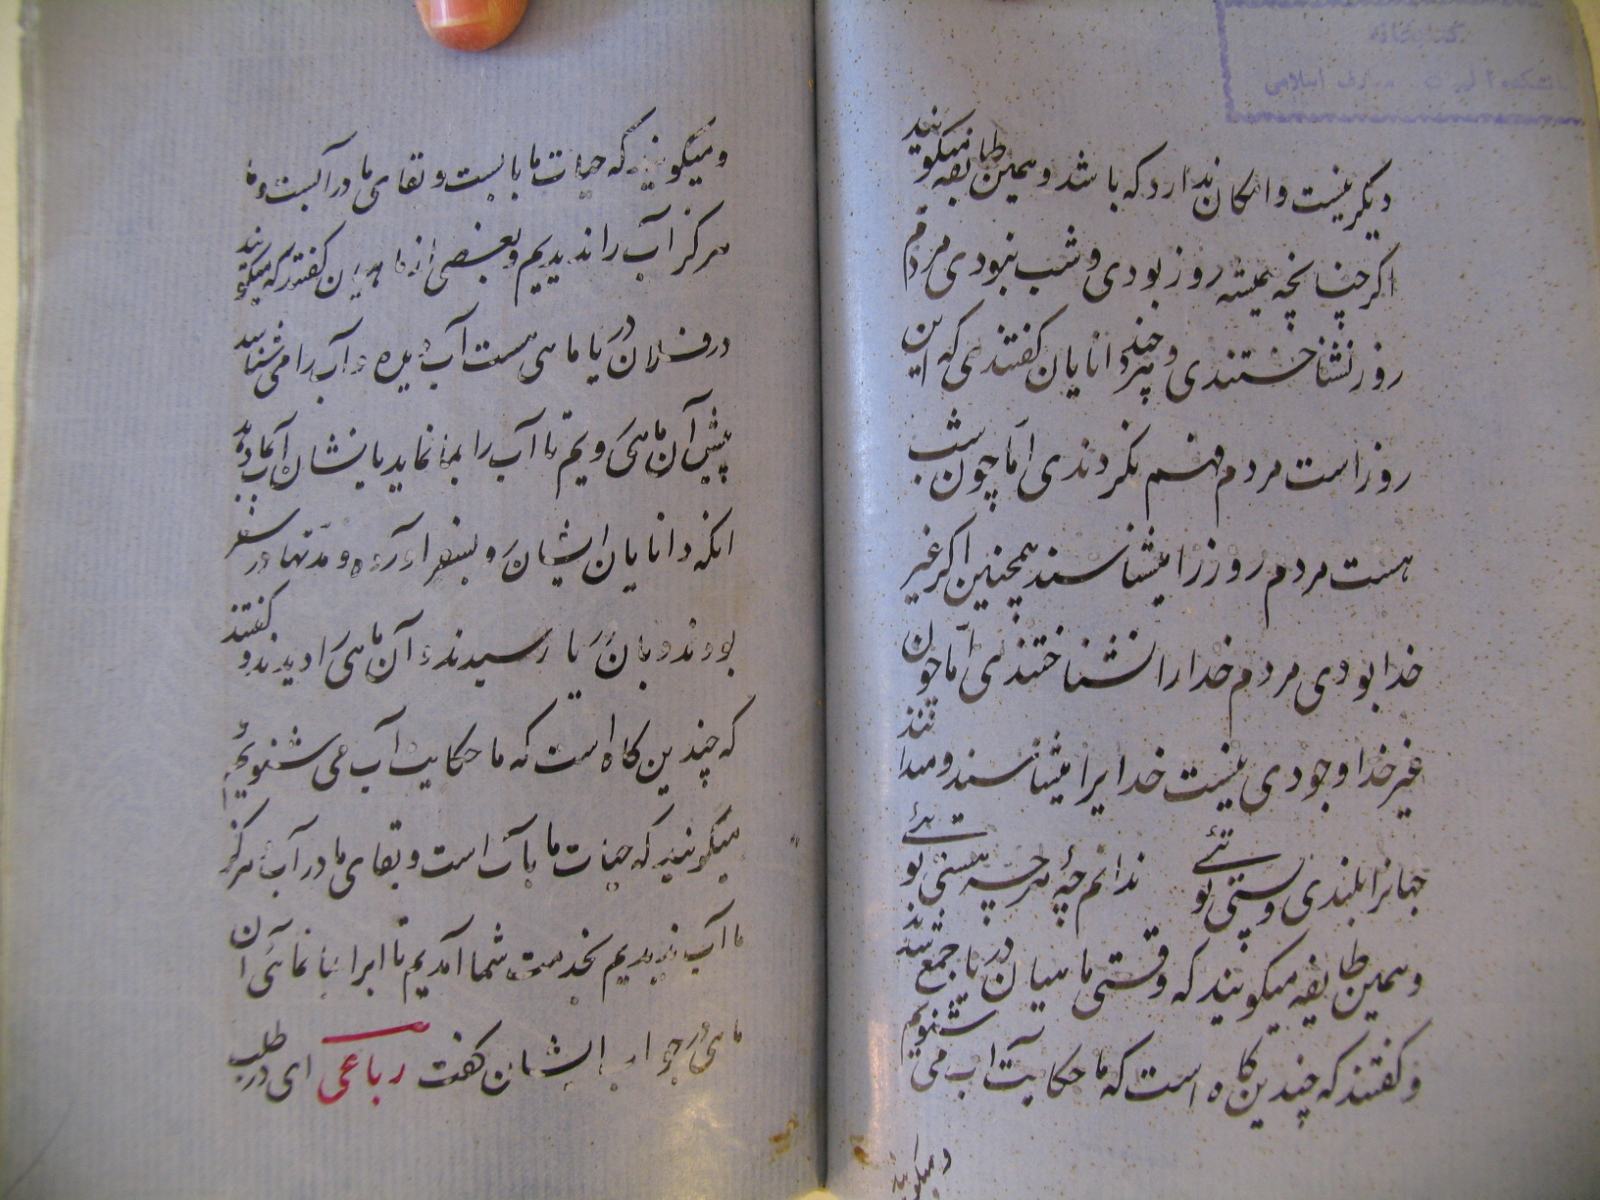 کتابخانه
دانشکده الهیات و معارف اسلامی
دیگر نیست و امکان ندارد که باشد و همین طایفه میکویند
اکر چنانچه همیشه روز بودی و شب نبودی مردم
روز نشناختندی و هر چند دانایان کفتندی که این
روز است مردم فهم نکردندی اما چون شب
هست مردم روز را میشناسند همچنین اکر غیر
خدا بودی مردم خدا را نشناختندی اما چون
غیر خدا وجودی نیست خدایرا میشناسند و میدانند
جهانرا بلندی و پستی توئی ندانم چۀ هر چه هستی توئی
و همین طایفه میکویند که وقتی ماهیان در دریا جمع شدند
و کفتند که چندین کاه است که ما حکایت آب می شنویم
و میکویند
و میکویند که حیات ما بآبست و بقای ما در آبست و ما
هرکز آب را ندیدیم و بعضی از ماهیان کفتند که میکویند
در فلان دریا ماهی هست آب دیده و آب را می شناسد
پیش آن ماهی رویم تا آب را بما نماید یا نشان آب دهد
انکه دانایان ایشان رو بسفر آورده و مدتها در سفر
بودند و بان دریا رسیدند و آن ماهی را دیدند و کفتند
که چندین کاه است که ما حکایت آب می شنویم
میکویند که حیات ما بآب است و بقای ما در آب هرکز
ما آب ندیدیم بخدمت شما آمدیم تا اب را بما نمائی آن
ماهی در جواب ایشان کفت رباعی ای در طلب